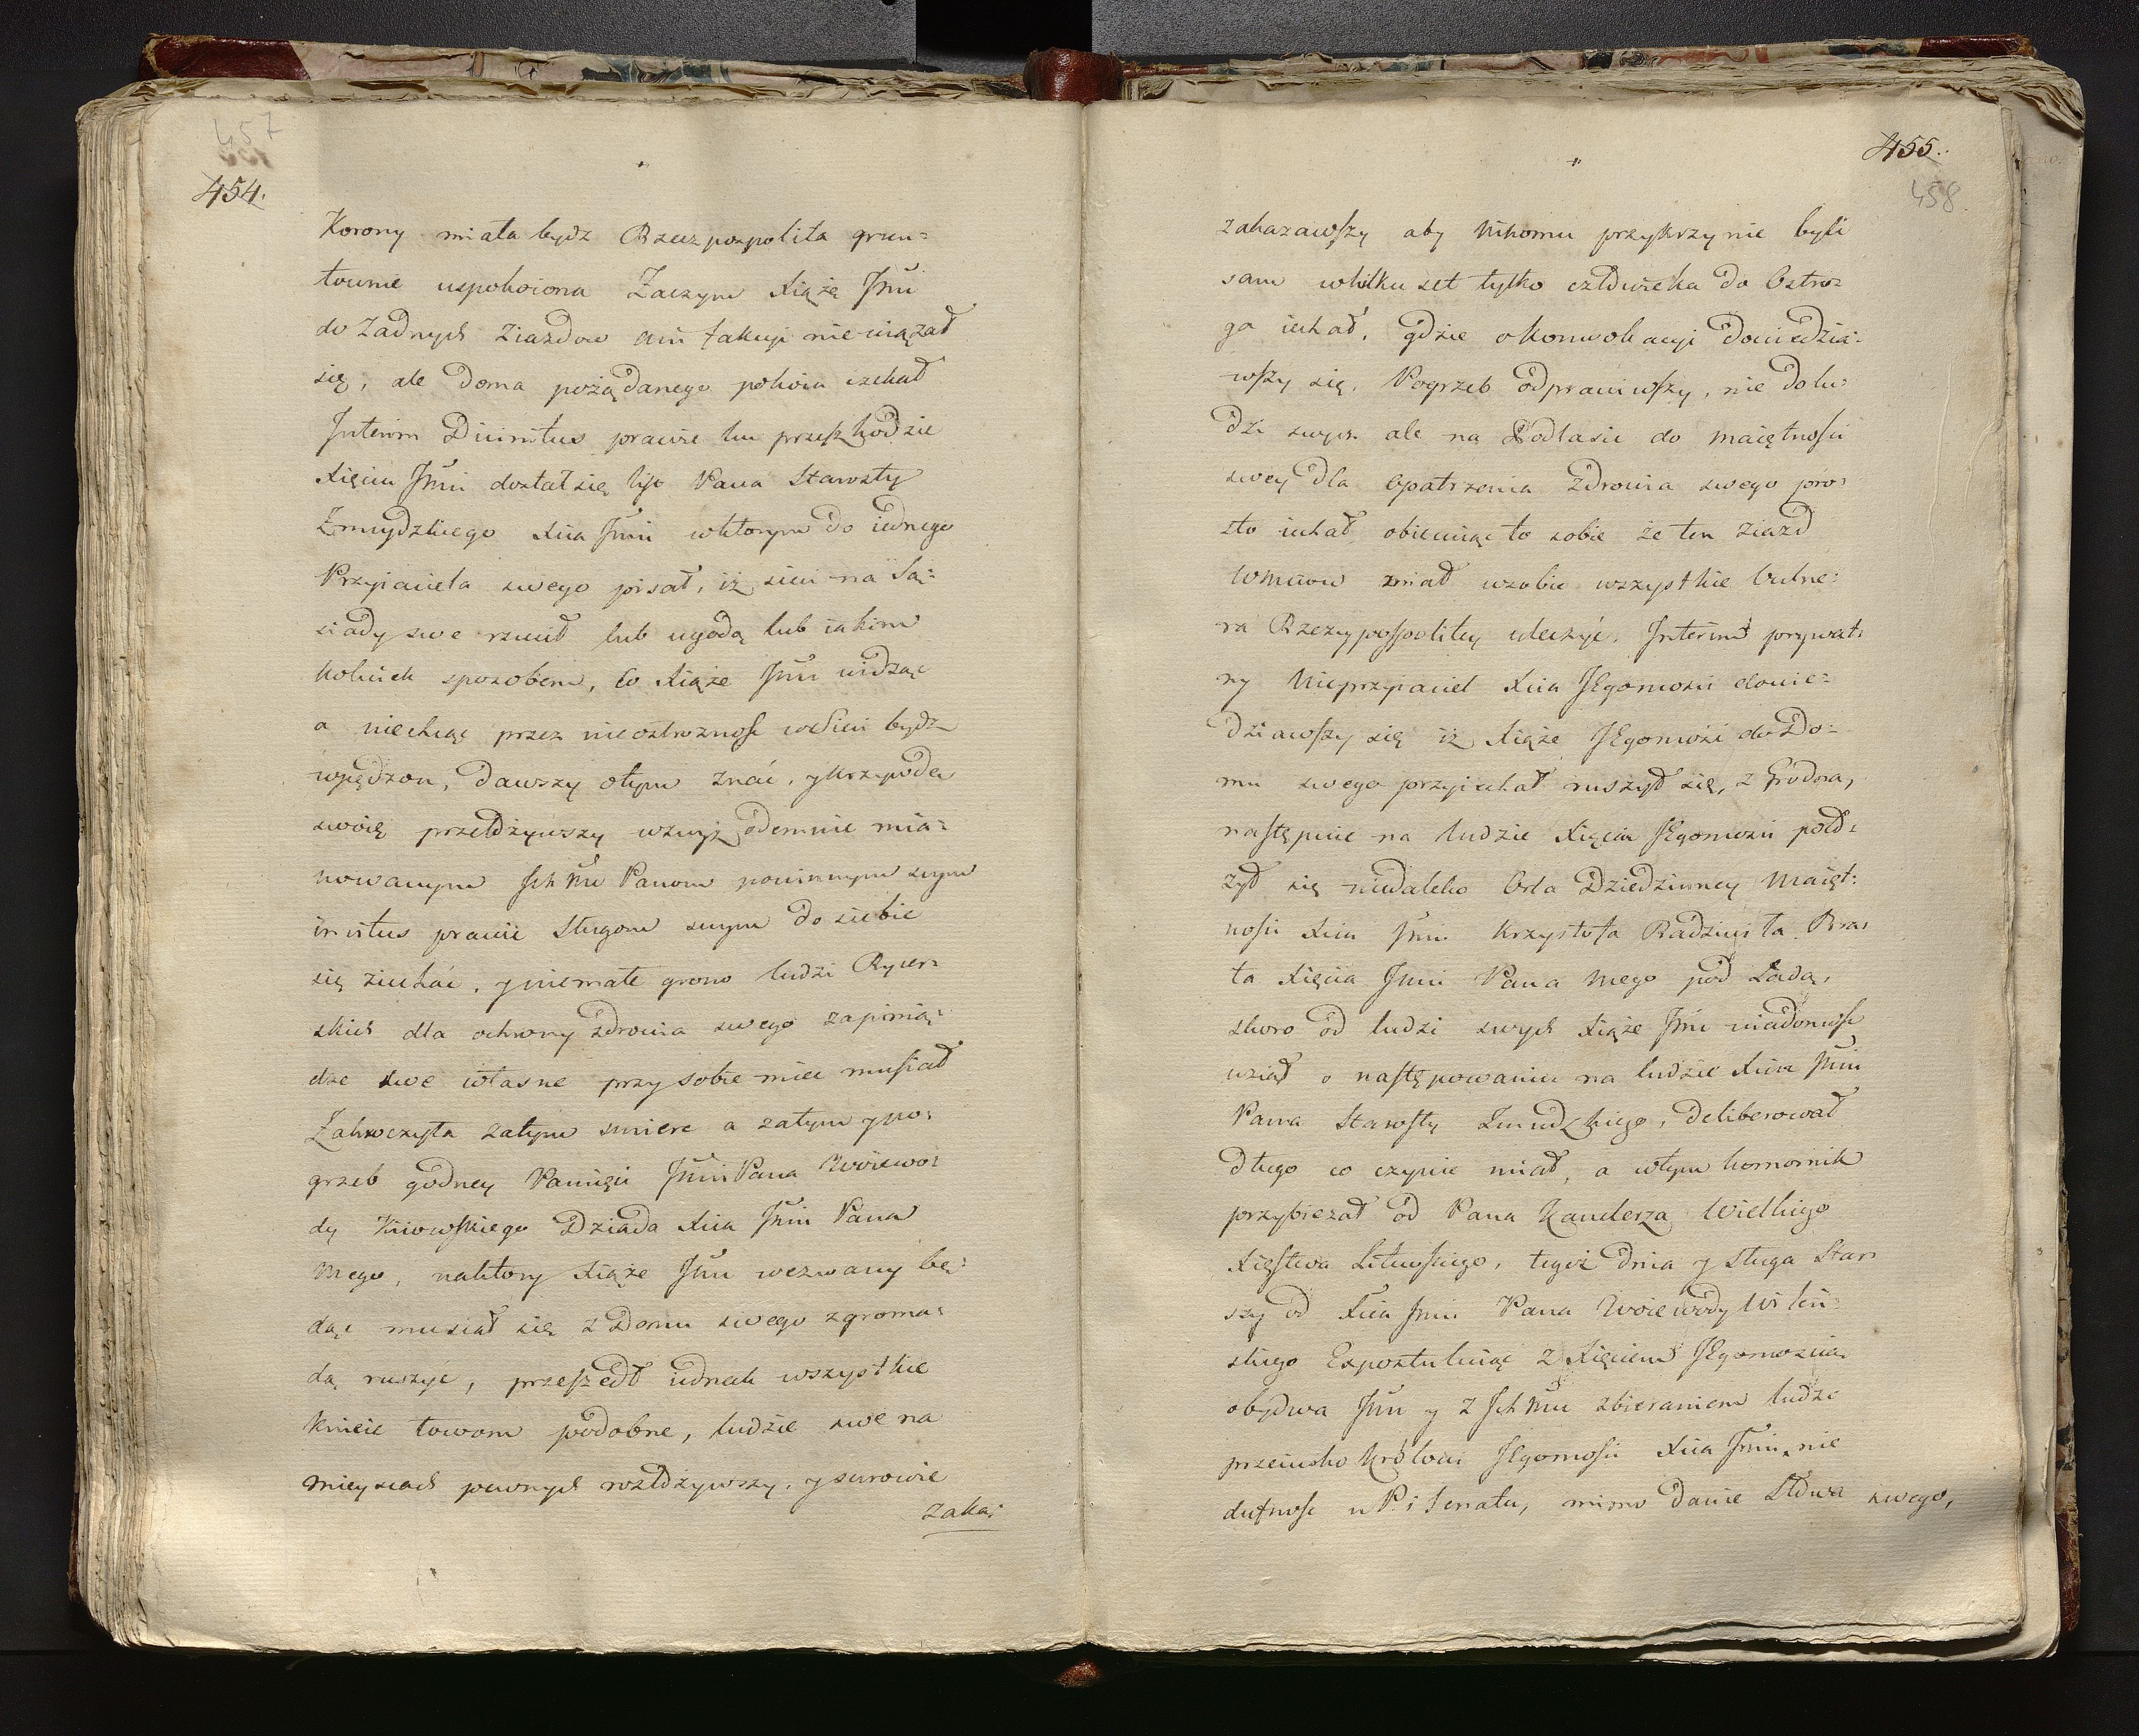 457
454.
Korony miała bydz Rzeczpospolita grun=
townie uspokoiona Zaczym Xiąże Jmi
do Zadnych Ziazdow ani fakcyi nie wiązał
się, ale doma pożądanego pokoiu czekał
Interim Divinitus prawie ku przeszkodzie
Xięciu Jmi dostał się lijst Pana Starosty
Zmuydzkiego Xcia Jmi wktorym do iednego
Przyiaciela swego pisał, iż sieci na Są=
siady swe rzucił lub ugodą lub iakim
kolwiek sposobem, co Xiąże Jmi widząc
a niechcąc przez nieostrożność w Sieci bydz
wpędzon, dawszy otym znać, y krzywdę
swoię przełożywszy wzwyż odemnie mia=
nowanym Ich Mc Panom powinnym swym
invitus prawie Sługom swym do siebie
się ziechać, y niemałe grono ludzi Rycer=
skich dla ochrony zdrowia swego zapienią=
dze swe własne przy sobie mieć musiał
Zakroczyła zatym smierć a zatym y po=
grzeb godney Pamięci Jmi Pana Woiewo=
dy Kiiowskiego Dziada Xcia Jmi Pana
Mego, naktory Xiąże Jmi wezwany bę=
dąc musiał się z Domu swego zgroma=
dą ruszyć, przeszedł iednak wszystkie
knieie łowom podobne, ludzie swe na
mieyscach pewnych rozłożywszy, y surowie
zaka=
455.
458
zakazawszy aby Nikomu przykrzy nie byli
sam wkilku set tylko człowieka do Ostro=
ga iechał, gdzie o Konwokacyi dowiedzia=
wszy się, Pogrzeb odprawiwszy, nie do lu=
dzi swych ale na Podlasie do maiętności
swey dla Opatrzenia Zdrowia swego pro=
sto iechał obiecuiąc to sobie że ten Ziazd
miał wsobie wszystkie Vulne=
ra Rzeczypospolitey uleczyć. Interim prywat=
ny Nieprzyiaciel Xcia JEgomości dowie=
dziawszy się iż Xiąże JEgomość do Do=
mu swego przyiechał ruszył się, z Grodna,
następuie na ludzie Xięcia JEgomości poło=
żył się niedaleko Orla Dziedziczney Maięt=
ności Xcia Jmi Krzysztofa Radziwiła Bra=
ta Xięcia Jmi Pana Mego pod
skoro od ludzi swych Xiąże Jmi wiadomość
wziął o następowaniu na ludzie Xcia Jmi
Pana Starosty Zmudzkiego, deliberował
długo co czynić miał, a wtym komornik
przybieżał od Pana Kanclerza Wielkiego
Xięstwa Litewskiego, tegoż dnia y Sługa Star=
szy od Xcia Jmi Pana Woiewody Wileń=
skiego Expostuluiąc z Xięciem JEgomością
obydwa Jmi y z Ich Mci zbieraniem ludzi
przeciwko Królowi JEgomości Xcia Jmi, nie
dufność u P: i Senatu, mimo danie Słowa swego,